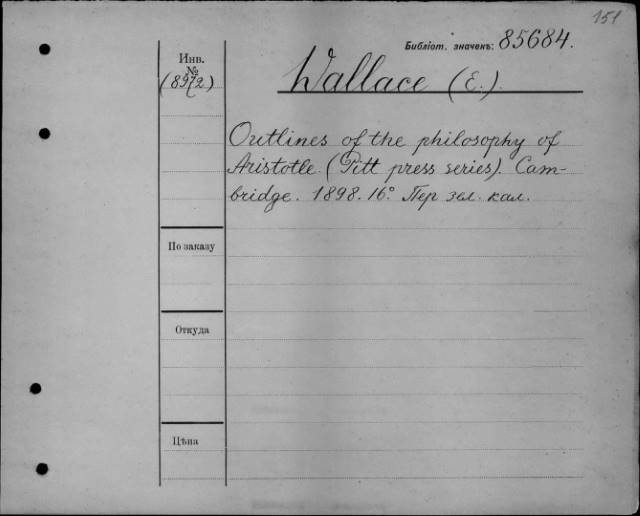 151
Библіот. значекъ: 85684.
Инв.
№
(8972)
Wallace (E.)
Outlines of the philosophy of
Aristotle. (Pitt press series). Cam-
bridge. 1898. 16º. Пер зел. кал.
По заказу
Откуда
Цѣна